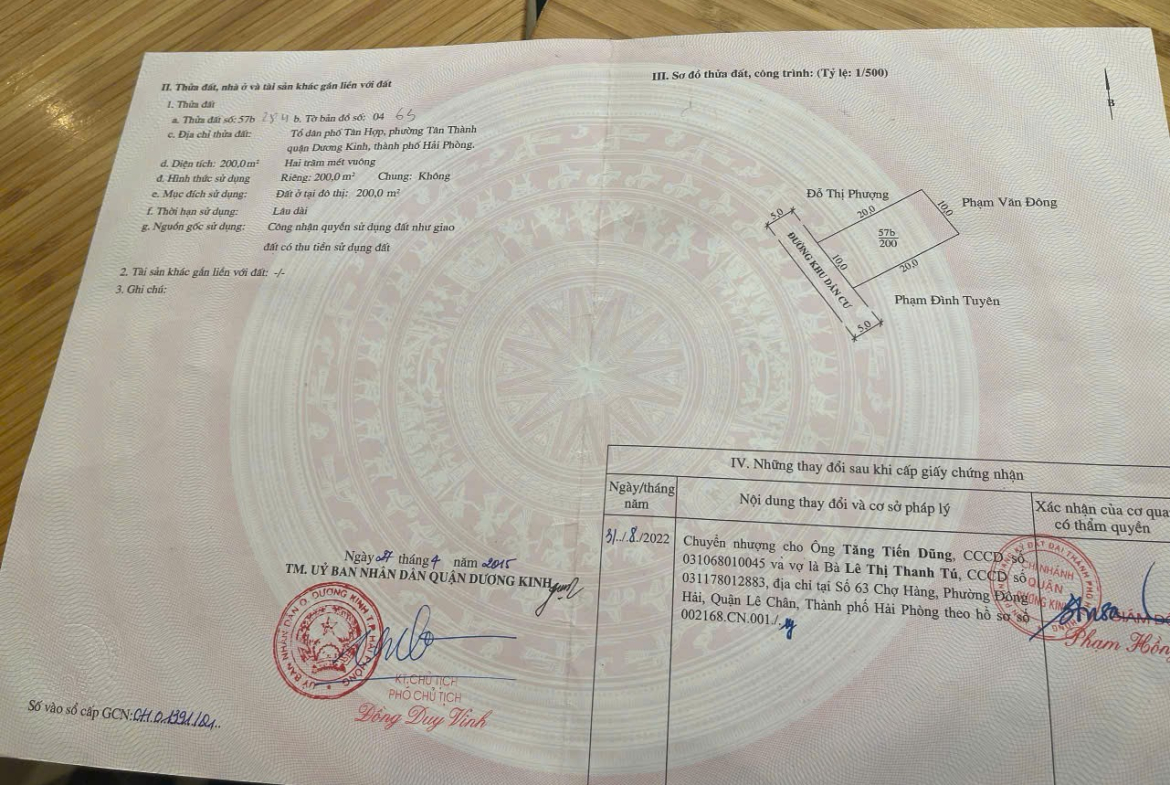 II. Thửa đất, nhà ở và tài sản khác gắn liền với đất
1. Thửa đất
a. Thửa đất số: 57b 254 b. Tờ bản đồ số: 04 65
c. Địa chỉ thửa đất: Tổ dân phố Tân Hợp, phường Tân Thành
quận Dương Kinh, thành phố Hải Phòng.
d. Diện tích: 200,0m² Hai trăm mét vuông
đ. Hình thức sử dụng Riêng: 200,0 m² Chung: Không
e. Mục đích sử dụng: Đất ở tại đô thị: 200,0 m²
f. Thời hạn sử dụng: Lâu dài
g. Nguồn gốc sử dụng: Công nhận quyền sử dụng đất như giao
đất có thu tiền sử dụng đất
2. Tài sản khác gắn liền với đất: -/-
3. Ghi chú:
Ngày 27 tháng 4 năm 2015
TM. UỶ BAN NHÂN DÂN QUẬN DƯƠNG KINH
UỶ BAN NHÂN DÂN Q. DƯƠNG KINH T.P HẢI PHÒNG
KT.CHỦ TỊCH
PHÓ CHỦ TỊCH
Đồng Duy Vinh
Số vào sổ cấp GCN: CH.0.1391/01..
III. Sơ đồ thửa đất, công trình: (Tỷ lệ: 1/500)
B
Đỗ Thị Phượng
Phạm Văn Đông
5,0
20,0
10,0
57b
200
10,0
20,0
ĐƯỜNG KHU DÂN CƯ
Phạm Đình Tuyên
5,0
IV. Những thay đổi sau khi cấp giấy chứng nhận
Ngày/tháng
năm
Nội dung thay đổi và cơ sở pháp lý
Xác nhận của cơ qua
có thẩm quyền
31../.8./2022
Chuyển nhượng cho Ông Tăng Tiến Dũng, CCCD số
031068010045 và vợ là Bà Lê Thị Thanh Tú, CCCD số
031178012883, địa chỉ tại Số 63 Chợ Hàng, Phường Đông
Hải, Quận Lê Chân, Thành phố Hải Phòng theo hồ sơ số
002168.CN.001./.
CHI NHÁNH
QUẬN
DƯƠNG KINH
GIÁM ĐỐ
Phạm Hồn